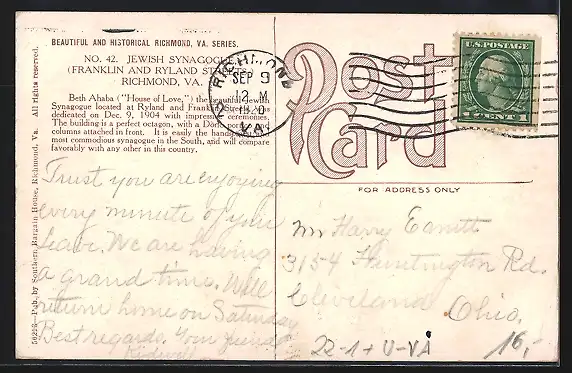 BEAUTIFUL AND HISTORICAL RICHMOND, VA. SERIES.
NO. 42. JEWISH SYNAGOGUE
(FRANKLIN AND RYLAND
RICHMOND, VA.
Beth Ahaba ("House of Love,") the beautiful Jewish
Synagogue located at Ryland and Franklin Streets, was
dedicated on Dec. 9, 1904 with impressive ceremonies.
The building is a perfect octagon, with a Doric portico and
columns attached in front. It is easily the handsomest and
most commodious synagogue in the South, and will compare
favorably with any other in this country.
50298—Pub. by Southern Bargain House, Richmond, Va. All rights reserved.
RICHMOND
SEP 9
12 M
VA.
U.S. POSTAGE
1 CENT 1
Post
Card
FOR ADDRESS ONLY
Trust you are enjoying
every minute of your
leave. We are having
a grand time. Will
return home on Saturday
Best regards. Your friend
Mr Harry
3154 Huntington Rd.
Cleveland Ohio.
22-1+U-VA
16,-